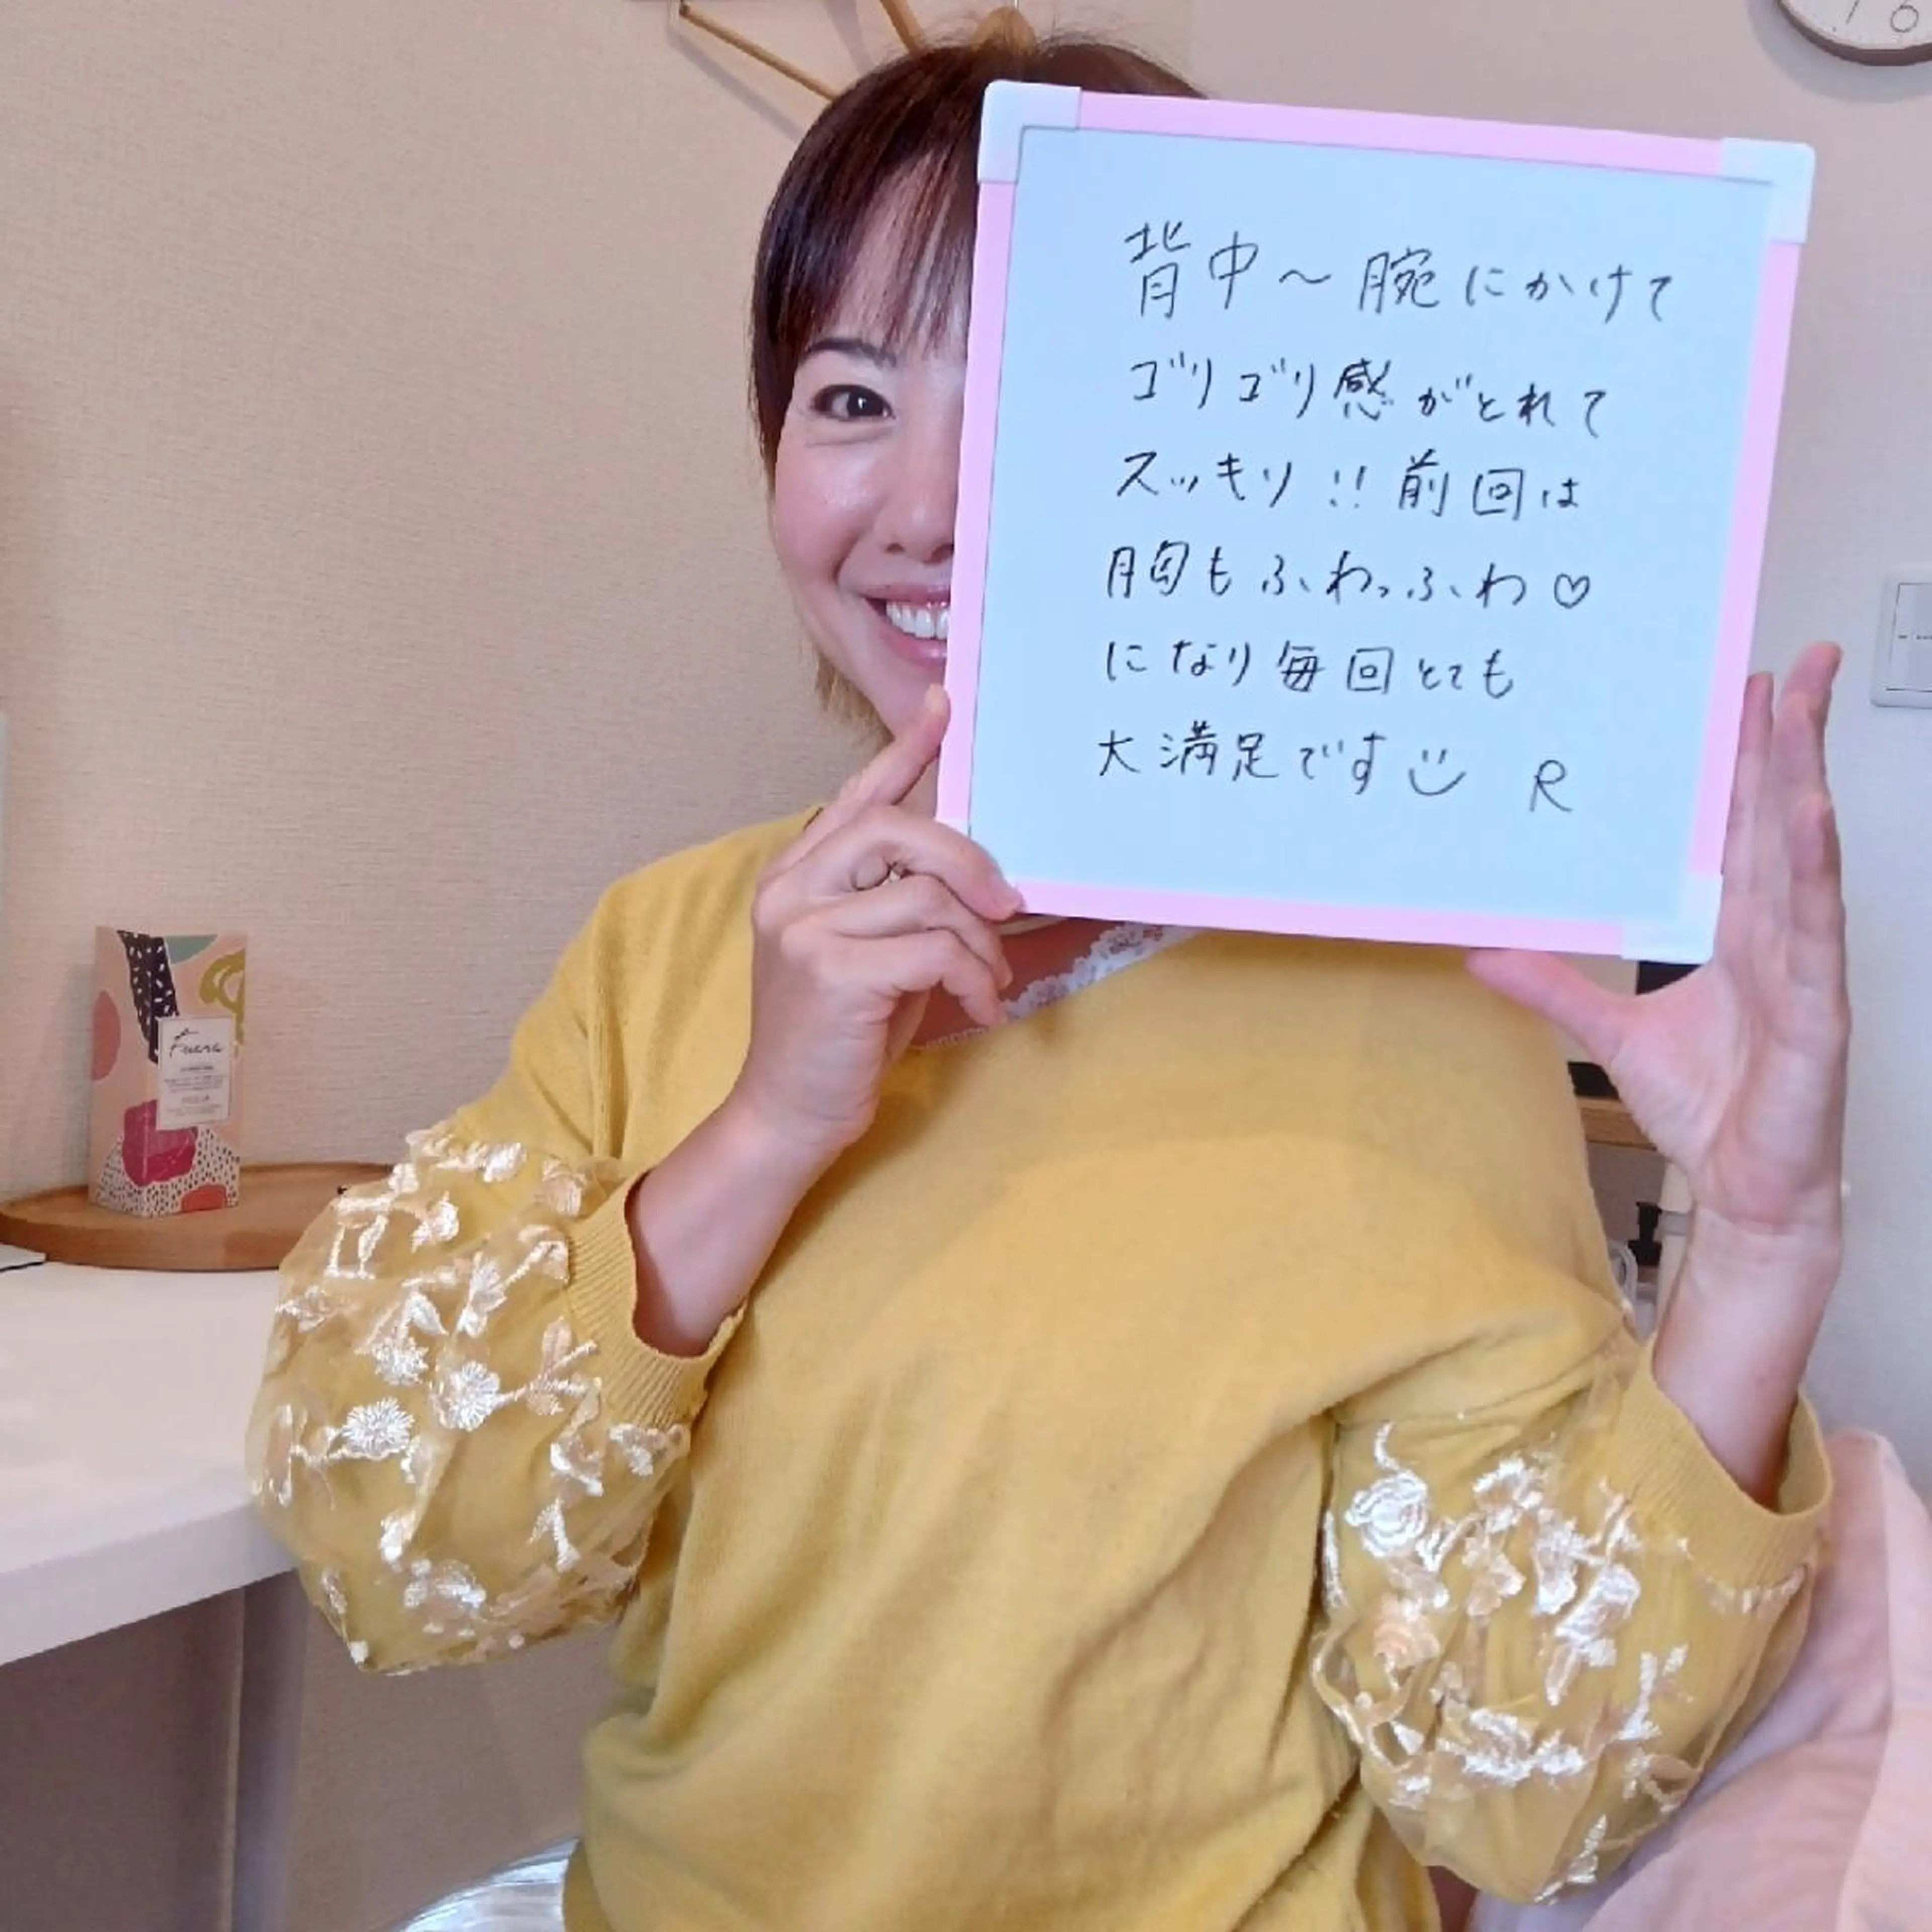 背中～腕にかけて
ゴリゴリ感がとれて
スッキリ!!前回は
胸もふわっふわ♡
になり毎回とても
大満足です R
Fuera
6